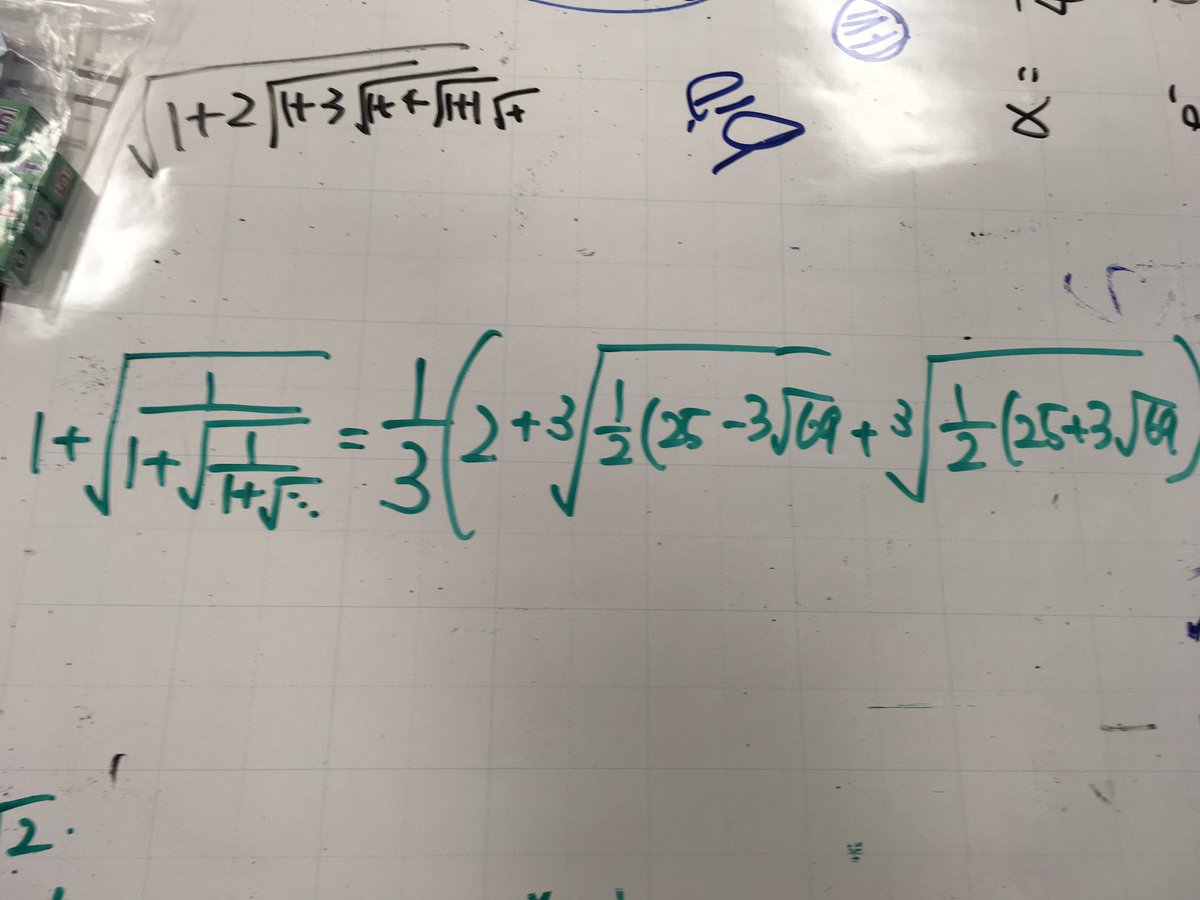 √(1+2√(1+3√(1+4√(1+1√+
α=
1+√(1/(1+√(1/(1+√⋱ = 1/3(2+³√(1/2(25-3√69+³√(1/2(25+3√69)
√2.